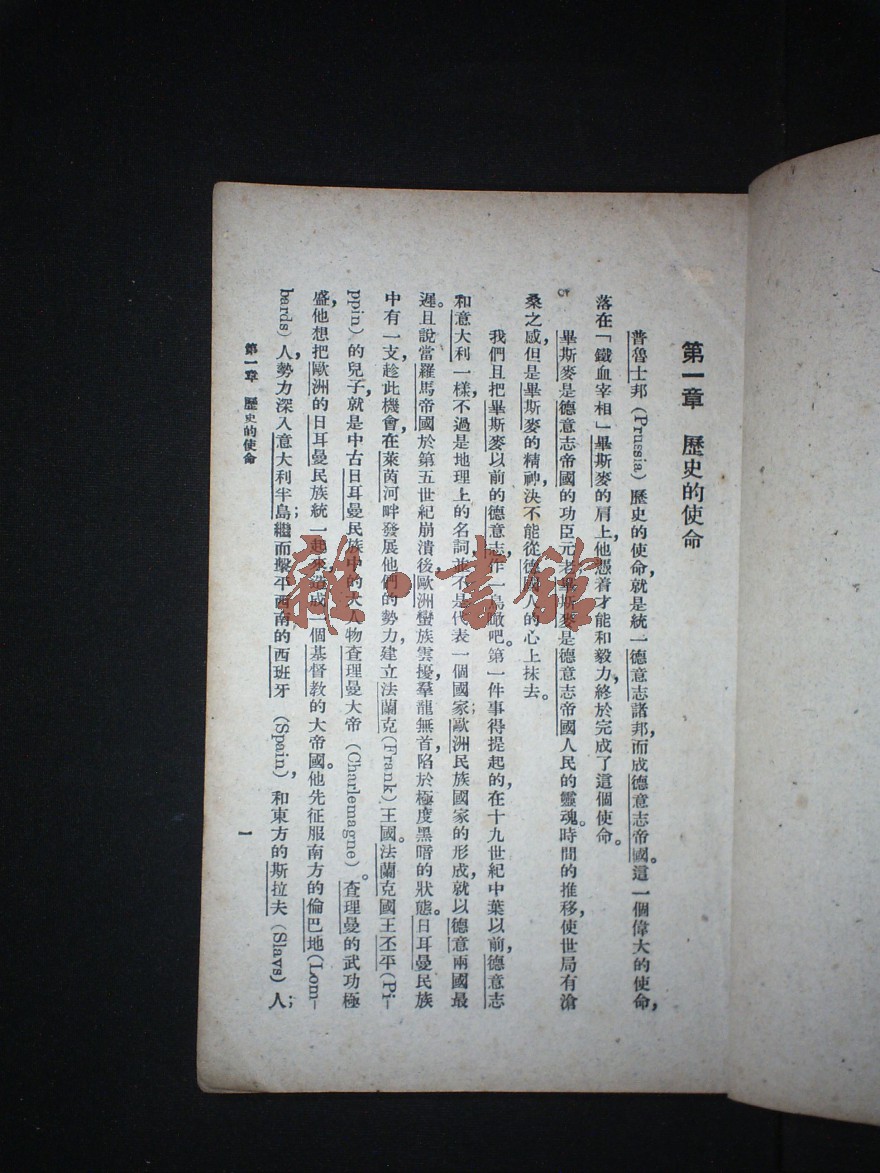 第一章 歷史的使命
普魯士邦(Prussia)歷史的使命，就是統一德意志諸邦，而成德意志帝國。這一個偉大的使命，
落在「鐵血宰相」畢斯麥的肩上，他憑着才能和毅力，終於完成了這個使命。
畢斯麥是德意志帝國的功臣元老，畢斯麥是德意志帝國人民的靈魂。時間的推移，使世局有滄
桑之感，但是畢斯麥的精神，決不能從德國人的心上抹去。
我們且把畢斯麥以前的德意志，作一鳥瞰吧。第一件事得提起的，在十九世紀中葉以前，德意志
和意大利一樣，不過是地理上的名詞，並不是代表一個國家；歐洲民族國家的形成，就以德意兩國最
遲。且說當羅馬帝國於第五世紀崩潰後，歐洲蠻族雲擾，羣龍無首，陷於極度黑暗的狀態。日耳曼民族
中有一支，趁此機會，在萊茵河畔發展他們的勢力，建立法蘭克(Frank)王國。法蘭克國王丕平(Pi-
ppin)的兒子，就是中古日耳曼民族中的大人物查理曼大帝(Charlemagne)。查理曼的武功極
盛，他想把歐洲的日耳曼民族統一起來，造成一個基督教的大帝國。他先征服南方的倫巴地(Lom-
bards)人，勢力深入意大利半島；繼而擊平西南的西班牙(Spain)，和東方的斯拉夫(Slavs)人；
第一章 歷史的使命
一
雜·書館